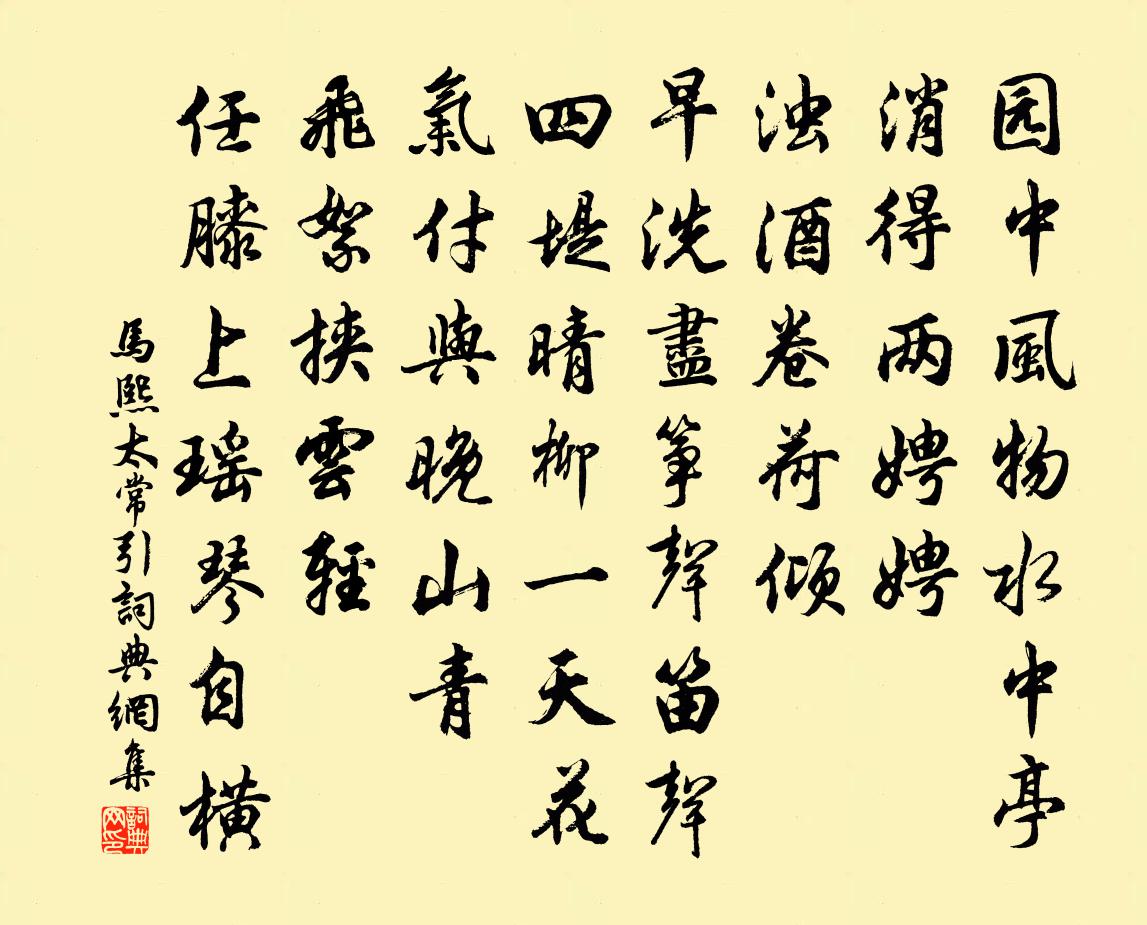 园中風物水中亭
消得两娉娉
浊酒卷荷倾
早洗盡筝聲笛聲
四堤晴柳一天花
氣付與晚山青
飛絮挾雲輕
任膝上瑶琴自橫
馬熙太常引詞典網集
詞典网印